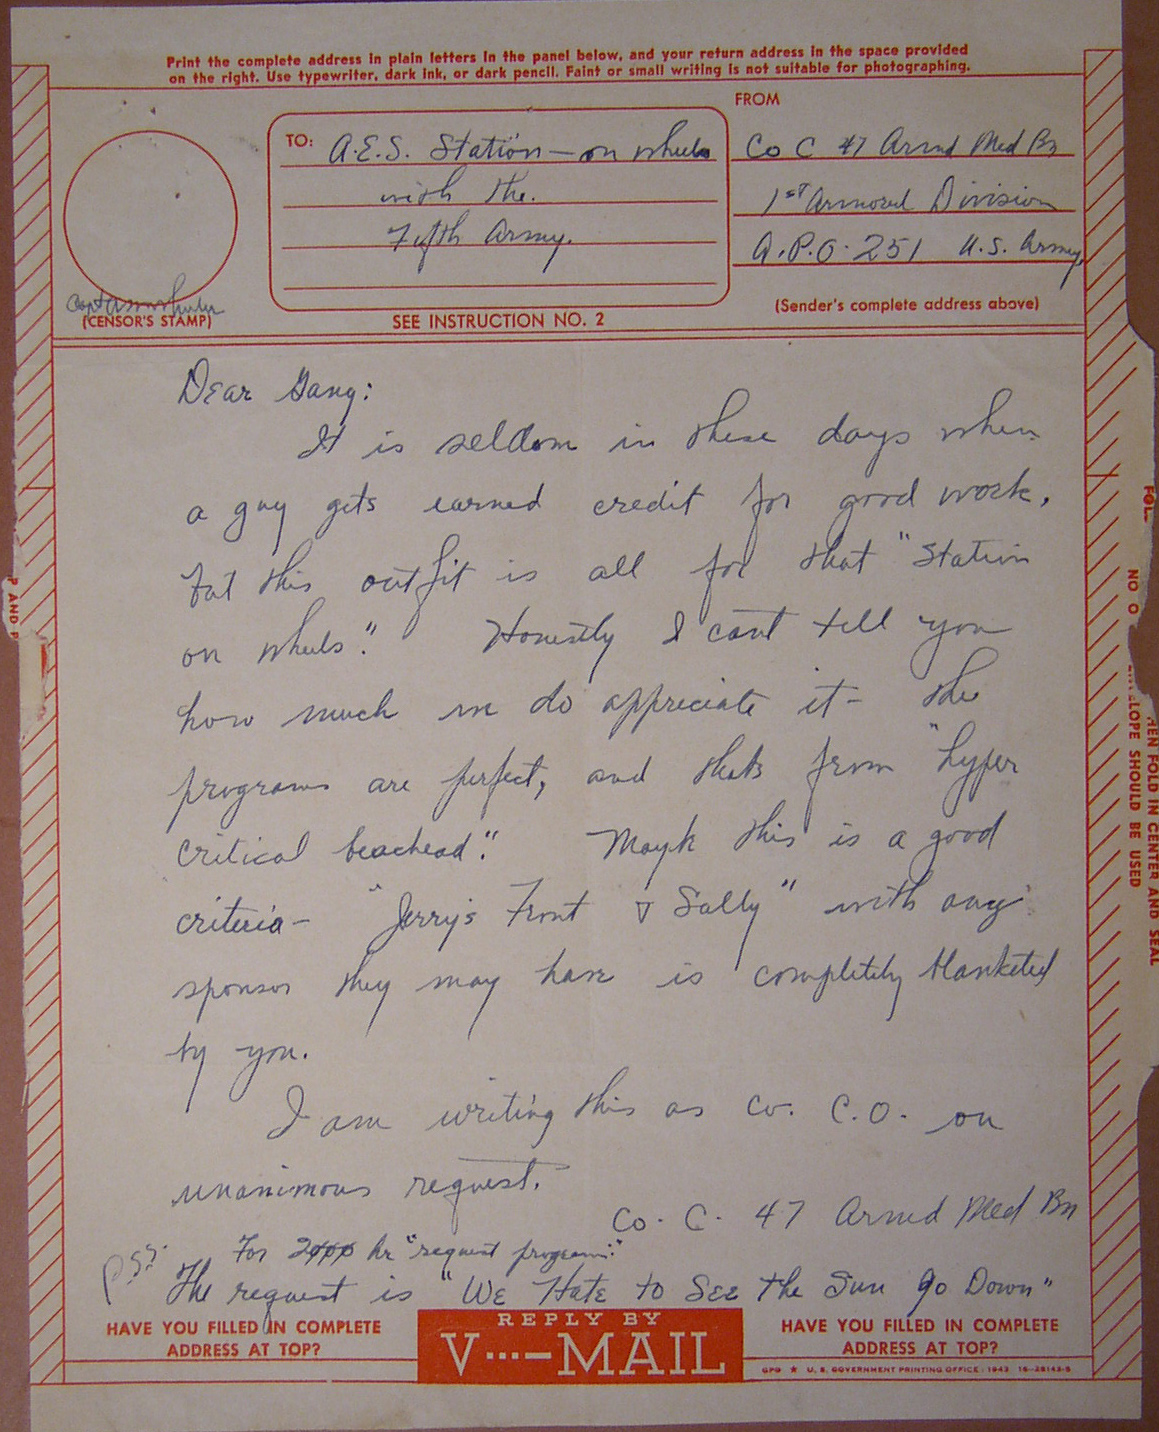 Print the complete address in plain letters in the panel below, and your return address in the space provided
on the right. Use typewriter, dark ink, or dark pencil. Faint or small writing is not suitable for photographing.
FROM
TO: A.E.S. Station — on wheels
with the.
Fifth Army.
Co C 47 Armd Med Bn
1st Armored Division
A.P.O. 251 U.S. Army.
(Sender's complete address above)
Capt
(CENSOR'S STAMP)
SEE INSTRUCTION NO. 2
Dear Gang:
It is seldom in these days when
a guy gets earned credit for good work,
but this outfit is all for that "Station
on wheels". Honestly I cant tell you
how much we do appreciate it - the
programs are perfect, and thats from "hyper
critical beachead". Maybe this is a good
criteria - "Jerry's Front & Sally" with any
sponsor they may have is completely blanketed
by you.
I am writing this as Co. C.O. on
unanimous request.
Co. C. 47 Armd Med Bn
For 2000 hr "request program."
P.S. The request is "We Hate to See the Sun go Down"
HAVE YOU FILLED IN COMPLETE
ADDRESS AT TOP?
REPLY BY
V···—MAIL
HAVE YOU FILLED IN COMPLETE
ADDRESS AT TOP?
GPO ★ U. S. GOVERNMENT PRINTING OFFICE : 1943 16—28143-5
FOLD IN CENTER AND SEAL
NO
ELOPE SHOULD BE USED
AND